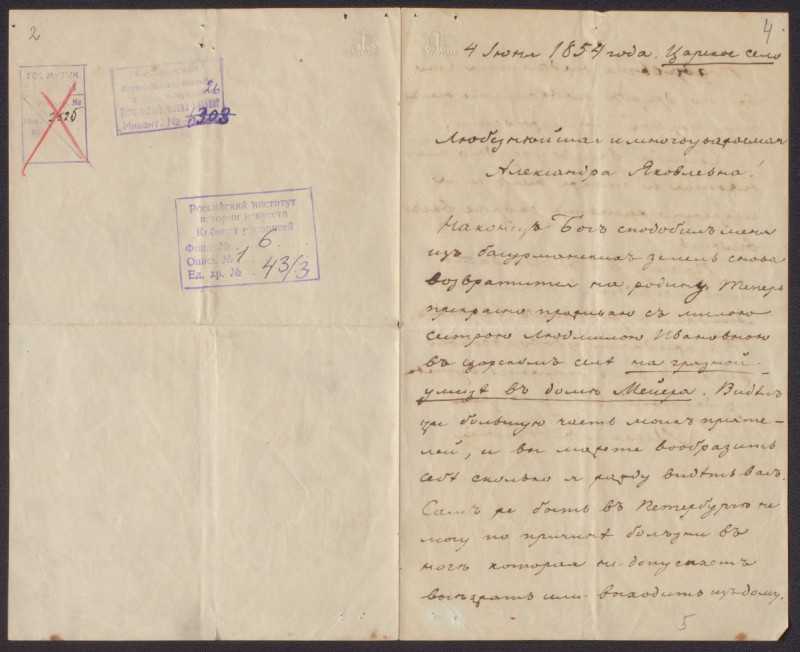 2
ГОС. МУЗИК.
№
3526
26
Инвент. № 1303
Российский институт
истории искусств
Кабинет рукописей
Фонд № 6
Опись № 1
Ед. хр. № 43/3
4
4 Июня 1854 года. Царское село
Любезнѣйшая и многоуважаемая
Александра Яковлевна!
Наконецъ Богъ сподобилъ меня
изъ басурманскихъ земель снова
возвратится на родину. Теперь
прекрасно проживаю съ милою
сестрою Людмилою Ивановною
въ царскомъ селѣ на грязной
улицѣ въ домѣ Мейера. Видѣлъ
уже большую часть моихъ пріяте-
лей, и вы можете вообразить
себѣ сколько я жажду видѣть васъ.
Самъ же быть въ Петербургѣ не
могу по причинѣ болѣзни въ
ногѣ которая не допускаетъ
выѣзжать или выходить изъ дому.
5